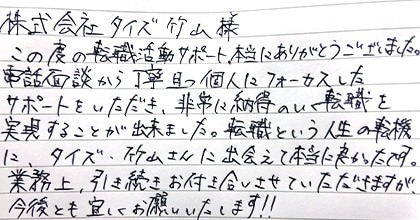 株式会社タイズ 竹山様
この度の転職活動サポート、本当にありがとうございました。
電話面談から丁寧且つ個人にフォーカスした
サポートをいただき、非常に納得のいく転職を
実現することが出来ました。転職という人生の転機
に、タイズ・竹山さんに出会えて本当に良かったです。
業務上、引き続きお付き合いさせていただきますが
今後とも宜しくお願いいたします!!